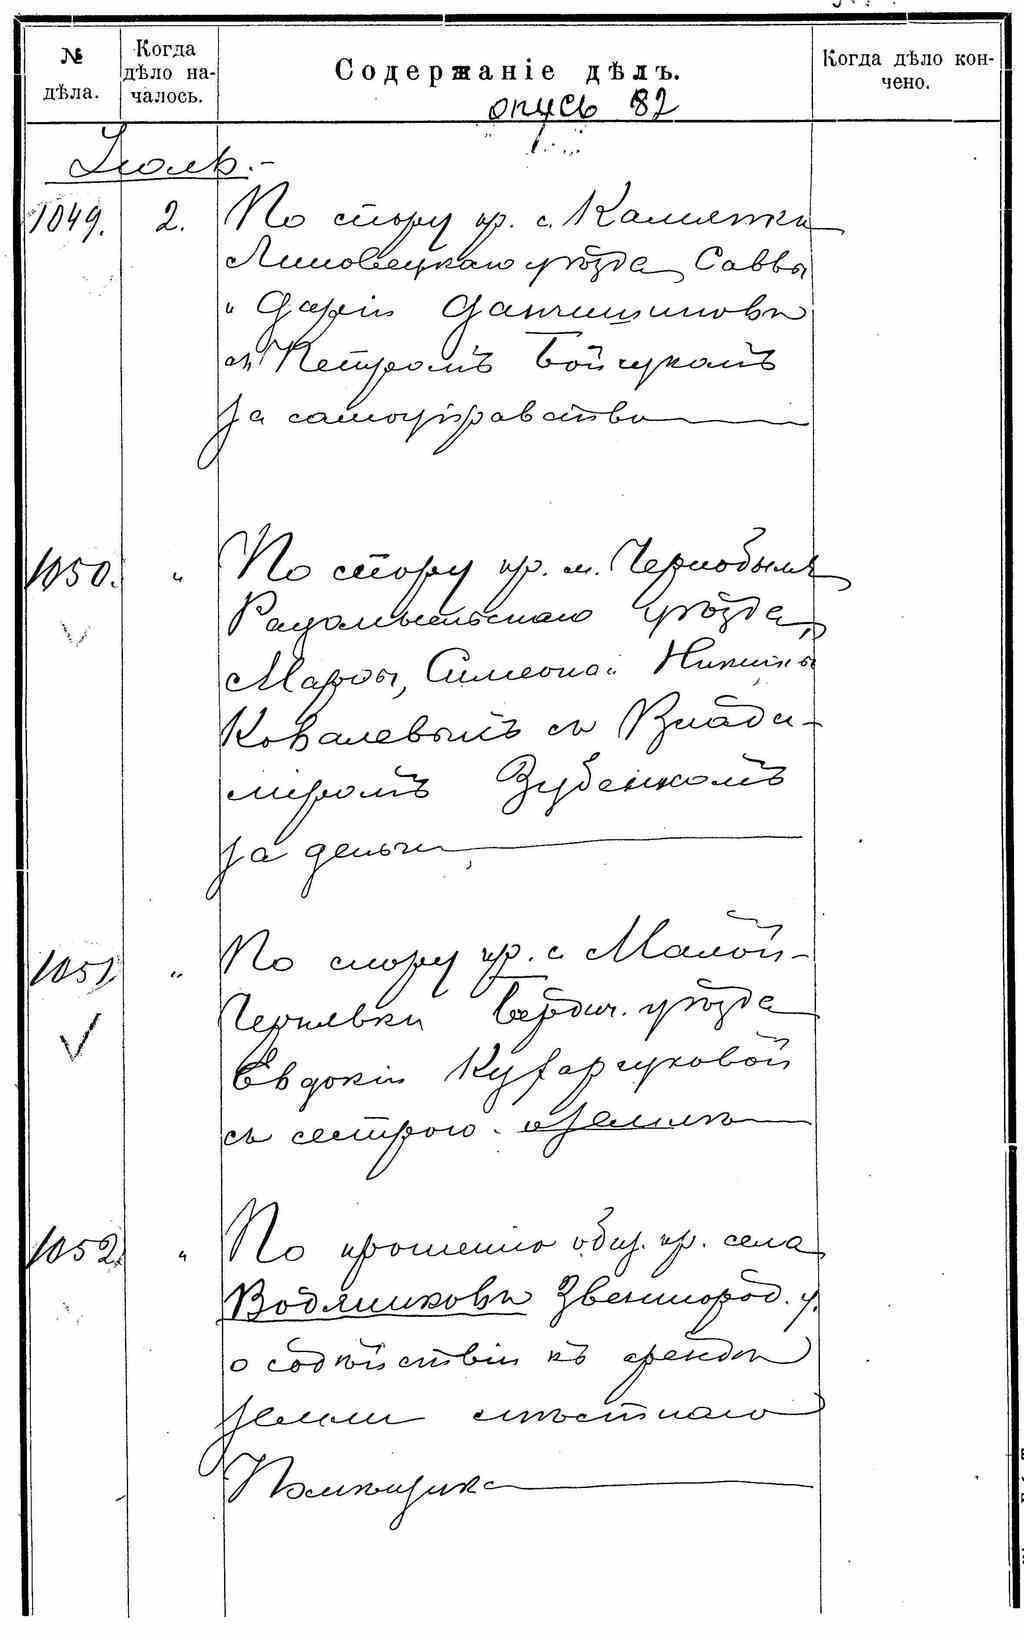 № дѣла.
Когда дѣло на-
чалось.
Содержаніе дѣлъ.
Когда дѣло кон-
чено.
опись 82
Іюль.-
1049. 2. По спору кр. с. Каменки
Липовецкаго уѣзда Саввы
и Даріи Данчишиновъ
съ Петромъ Бойчукомъ
за самоуправство
1050. " По спору кр. м. Чернобыля
Радомысльскаго уѣзда,
Марфы, Симеона и Никиты
Ковалевыхъ съ Влади-
міромъ Зубенкомъ
за деньги
1051 " По спору кр. с. Малой-
Чернявки Бердич. уѣзда
Евдокіи Кухарчуковой
съ сестрою о землѣ
1052. " По прошенію общ. кр. села
Водяниковъ Звенигород. у.
о содѣйствіи къ арендѣ
земли мѣстнаго
Помѣщика